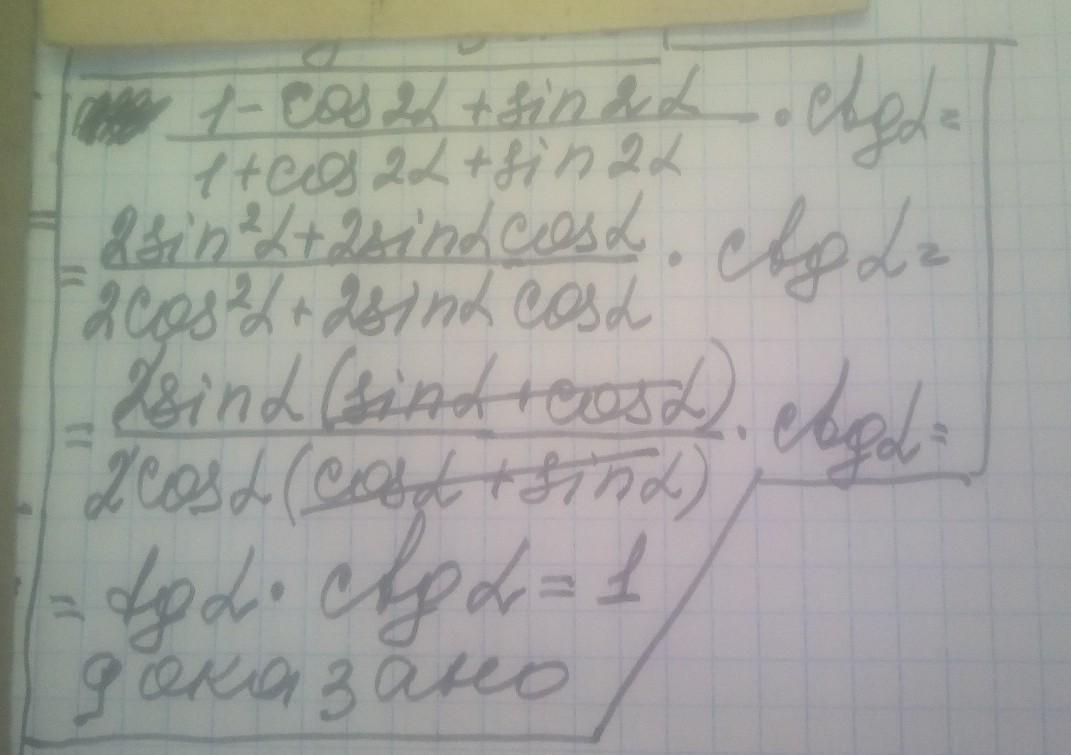 1 - cos2α + sin2α / 1 + cos2α + sin2α · ctgα =
= 2sin²α + 2sinα cosα / 2cos²α + 2sinα cosα · ctgα =
= 2sinα (sinα + cosα) / 2cosα (cosα + sinα) · ctgα =
= tgα · ctgα = 1
доказано